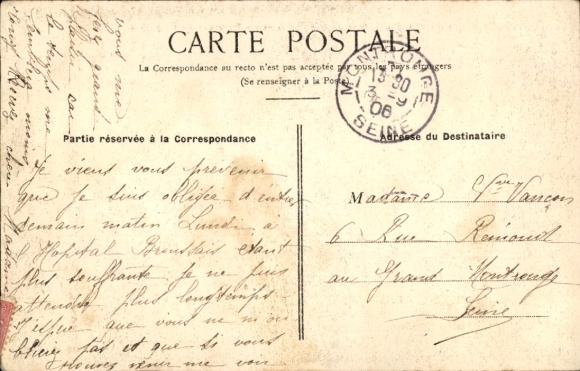 CARTE POSTALE
La Correspondance au recto n'est pas acceptée par tous les pays étrangers
(Se renseigner à la Poste)
MONTROUGE
15 30
3 - 9
06
SEINE
Partie réservée à la Correspondance
Adresse du Destinataire
Je viens vous prevenir
que je suis obligée d'entrer
demain matin Lundi à
l'Hopital Broussais etant
plus souffrante je ne puis
attendre plus longtemps
J'espere que vous ne m'ou
blierez pas et que si vous
pouvez venir me voir
vous me
ferez grand
plaisir car
le temps me
semblera moins
long
chère Madame
Madame Vve Vancon
6 Rue Raimond
au Grand Montrouge
Seine